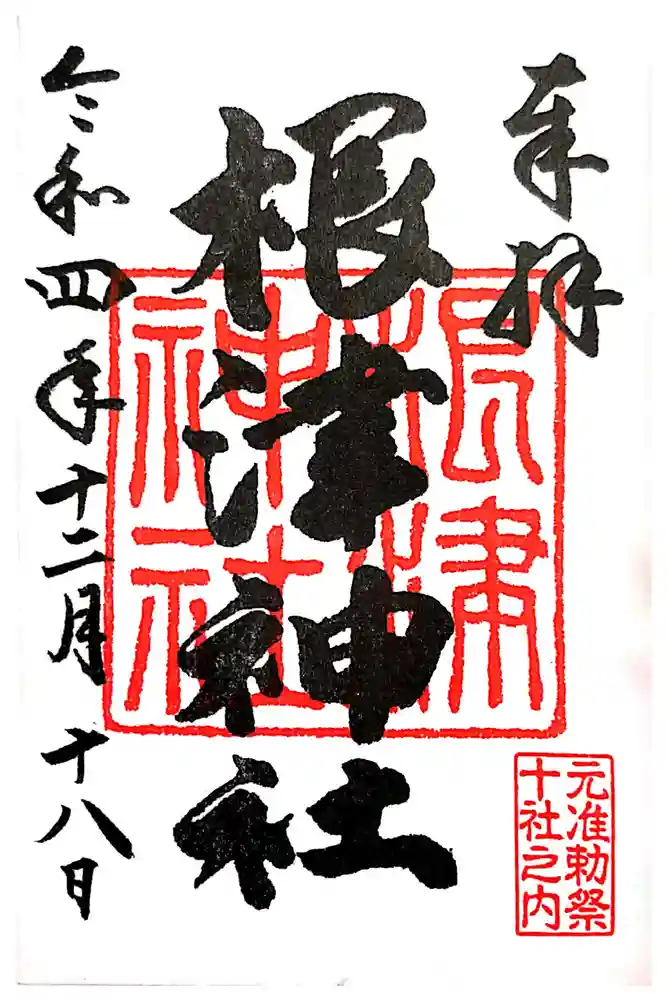 奉拝
根津神社
根津
神社
元准勅祭
十社之内
令和四年十二月十八日